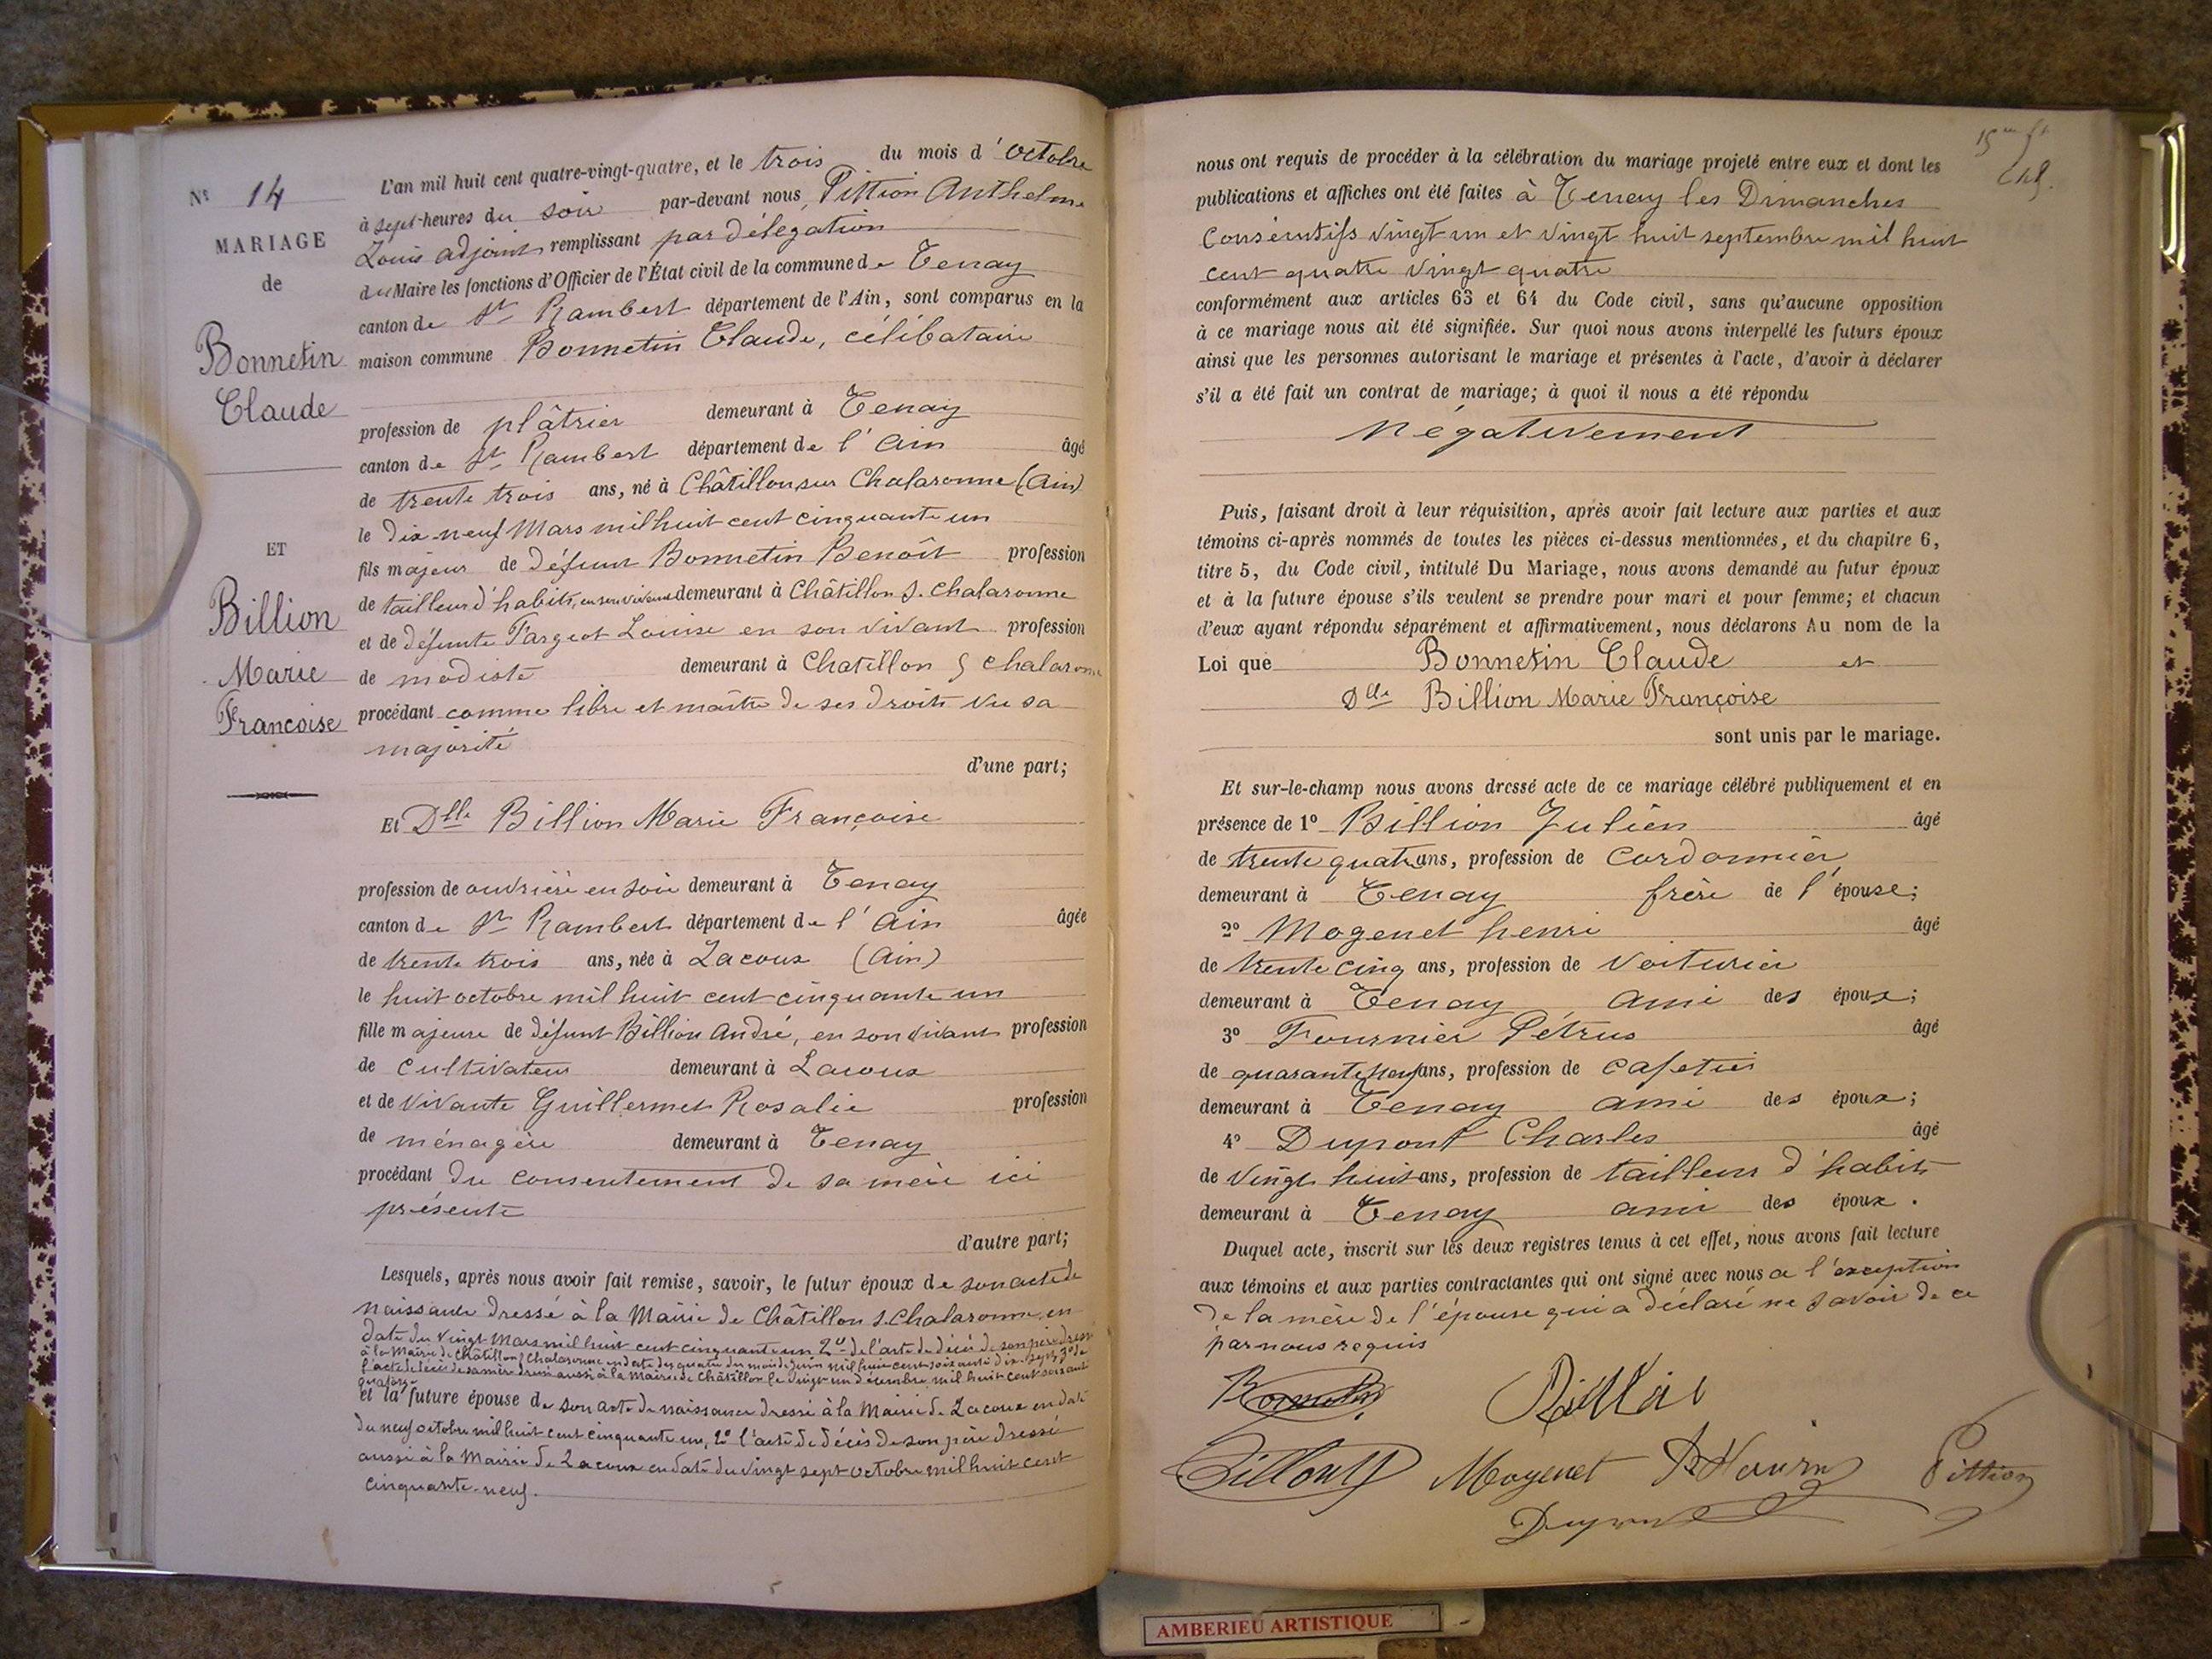 Nº 14
MARIAGE
de
Bonnetin
Claude
ET
Billion
Marie
Françoise
L'an mil huit cent quatre-vingt-quatre, et le trois du mois d'octobre
à sept heures du soir par-devant nous, Pittion Anthelme
Louis adjoint remplissant par délégation
du Maire les fonctions d'Officier de l'État civil de la commune de Tenay
canton de St Rambert département de l'Ain, sont comparus en la
maison commune Bonnetin Claude, célibataire
profession de plâtrier demeurant à Tenay
canton de St Rambert département de l'Ain âgé
de trente trois ans, né à Châtillon sur Chalaronne (Ain)
le dix-neuf Mars mil huit cent cinquante un
fils majeur de défunt Bonnetin Benoît profession
de tailleur d'habits, en son vivant demeurant à Châtillon S. Chalaronne
et de défunte Targeot Louise en son vivant profession
de modiste demeurant à Chatillon S Chalaronne
procédant comme libre et maître de ses droits vu sa
majorité
d'une part;
Et Dlle Billion Marie Françoise
profession de ouvrière en soie demeurant à Tenay
canton de St Rambert département de l'Ain âgée
de trente trois ans, née à Lacoux (Ain)
le huit octobre mil huit cent cinquante un
fille majeure de défunt Billion André, en son vivant profession
de cultivateur demeurant à Lacoux
et de vivante Guillermet Rosalie profession
de ménagère demeurant à Tenay
procédant du consentement de sa mère ici
présente
d'autre part;
Lesquels, après nous avoir fait remise, savoir, le futur époux de son acte de
naissance dressé à la Mairie de Châtillon S. Chalaronne en
date du vingt Mars mil huit cent cinquante un 2º de l'acte de décès de son père dressé
à la Mairie de Châtillon S Chalaronne en date du quatre du mois de Juin mil huit cent soixante dix-sept, 3º de
l'acte de décès de sa mère dressé aussi à la Mairie de Châtillon le vingt un décembre mil huit cent soixante
quatorze
et la future épouse de son acte de naissance dressé à la Mairie de Lacoux en date
du neuf octobre mil huit cent cinquante un, 2º l'acte de décès de son père dressé
aussi à la Mairie de Lacoux en date du vingt sept octobre mil huit cent
cinquante-neuf.
nous ont requis de procéder à la célébration du mariage projeté entre eux et dont les
publications et affiches ont été faites à Tenay les Dimanches
consécutifs vingt un et vingt huit septembre mil huit
cent quatre vingt quatre
conformément aux articles 63 et 64 du Code civil, sans qu'aucune opposition
à ce mariage nous ait été signifiée. Sur quoi nous avons interpellé les futurs époux
ainsi que les personnes autorisant le mariage et présentes à l'acte, d'avoir à déclarer
s'il a été fait un contrat de mariage; à quoi il nous a été répondu
Négativement
Puis, faisant droit à leur réquisition, après avoir fait lecture aux parties et aux
témoins ci-après nommés de toutes les pièces ci-dessus mentionnées, et du chapitre 6,
titre 5, du Code civil, intitulé Du Mariage, nous avons demandé au futur époux
et à la future épouse s'ils veulent se prendre pour mari et pour femme; et chacun
d'eux ayant répondu séparément et affirmativement, nous déclarons Au nom de la
Loi que Bonnetin Claude et
Dlle Billion Marie Françoise
sont unis par le mariage.
Et sur-le-champ nous avons dressé acte de ce mariage célébré publiquement et en
présence de 1º Billion Julien âgé
de trente quatre ans, profession de cordonnier
demeurant à Tenay frère de l'épouse;
2º Mogenet henri âgé
de trente cinq ans, profession de voiturier
demeurant à Tenay ami des époux;
3º Fournier Pétrus âgé
de quarante neuf ans, profession de cafetier
demeurant à Tenay ami des époux;
4º Dupont Charles âgé
de vingt huit ans, profession de tailleur d'habits
demeurant à Tenay ami des époux.
Duquel acte, inscrit sur les deux registres tenus à cet effet, nous avons fait lecture
aux témoins et aux parties contractantes qui ont signé avec nous à l'exception
de la mère de l'épouse qui a déclaré ne savoir de ce
par nous requis
Bonnetin
Mogenet
Pittion
Dupont
AMBERIEU ARTISTIQUE